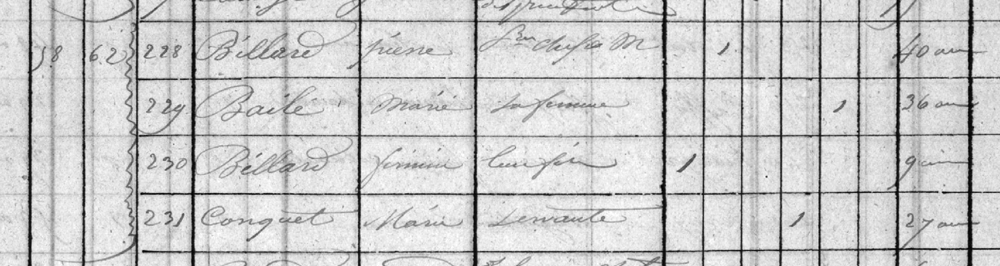 58 62 228 Billard pierre M 1 40 ans
229 Bailé Marie sa femme 1 36 ans
230 Billard firmin leur fils 1 9 ans
231 Conquet Marie servante 1 27 ans